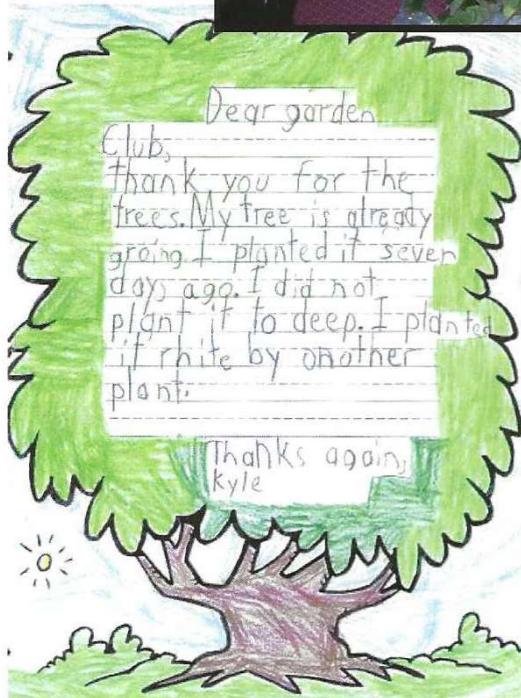 Dear garden
Club,
thank you for the
trees. My tree is already
groing. I planted it seven
days ago. I did not
plant it to deep. I planted
it rhite by onother
plant.
Thanks again,
Kyle